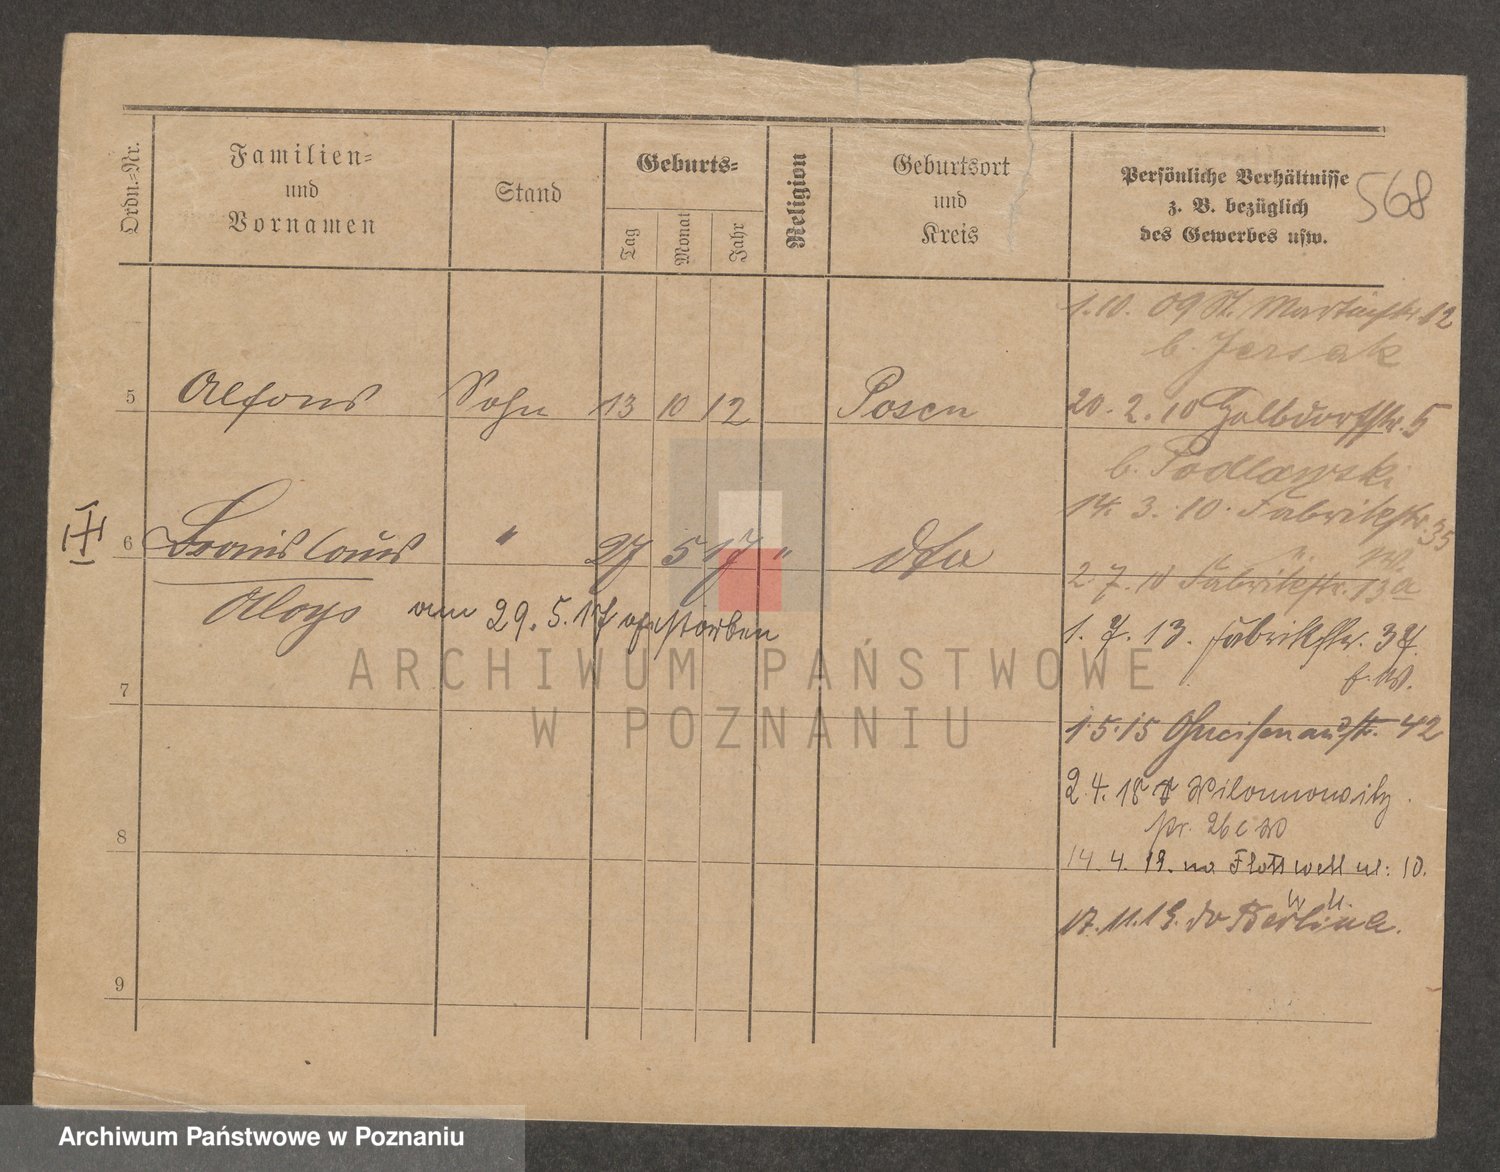 568
Ordn.-Nr.
Familien-
und
Vornamen
Stand
Geburts-
Tag
Monat
Jahr
Religion
Geburtsort
und
Kreis
Persönliche Verhältnisse
z. B. bezüglich
des Gewerbes usw.
1.10. 09 St. Martinstr. 12
b. Jersak
5 Alfons Sohn 13 10 12 Posen
20. 2. 10 5
b. Podlawski
14. 3. 10. Fabrikstr. 35
6 Bronislaus " 27 5 17 " dto
Aloys am 29. 5. 17 gestorben
2. 7. 10 Fabrikstr. 13a
1. 7. 13. Fabrikstr. 37.
7
1.5.15 Gneisenaustr. 42
2. 4. 18 Wilamowitz
str. 26c
8
14. 4. 19. na Flottwell ul: 10.
17. 11. 19. do Berlina.
9
ARCHIWUM PAŃSTWOWE
W POZNANIU
Archiwum Państwowe w Poznaniu